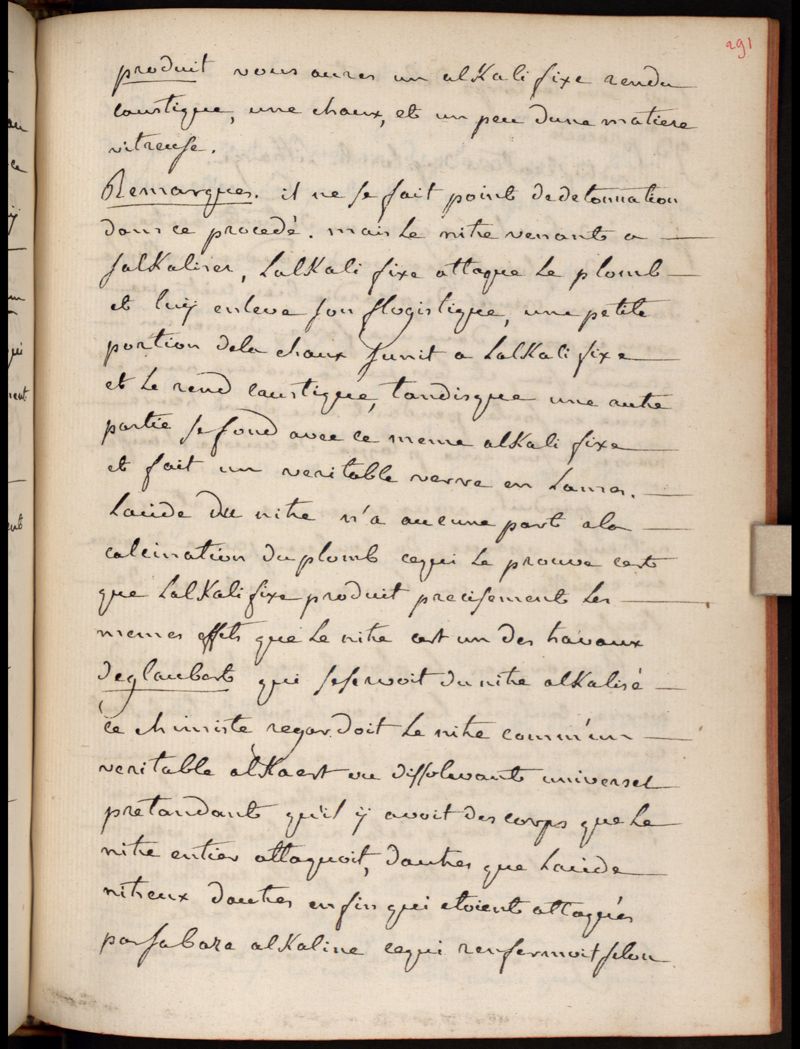 291
produit vous aures un alKali fixe rendu
caustique, une chaux, et un peu dune matiere
vitreuse.
Remarques. il ne se fait point dedetonnation
dans ce procedé. mais le nitre venants a
salKaliser, LalKali fixe attaque Le plomb
et luÿ enleve son flogistique, une petite
portion dela chaux sunit a LalKali fixe
et Le rend caustique, tandisque une autre
partie se fond avec ce meme alKali fixe
et fait un veritable verre en
Lacide du nitre n'a aucune part ala
calcination du plomb cequi Le prouve cest
que LalKali fixe produit precisement Les
memes effets que Le nitre cest un des travaux
deglaubert qui seservoit du nitre alKalisé
ce chimiste regardoit Le nitre comm'un
veritable alKaest ou dissolevant universel
pretandant qu'il ÿ avoit des corps que Le
nitre entier attaquoit, dautres que Lacide
nitreux dautres enfin qui etoient attaqués
par sa baze alKaline cequi renfermoit selon